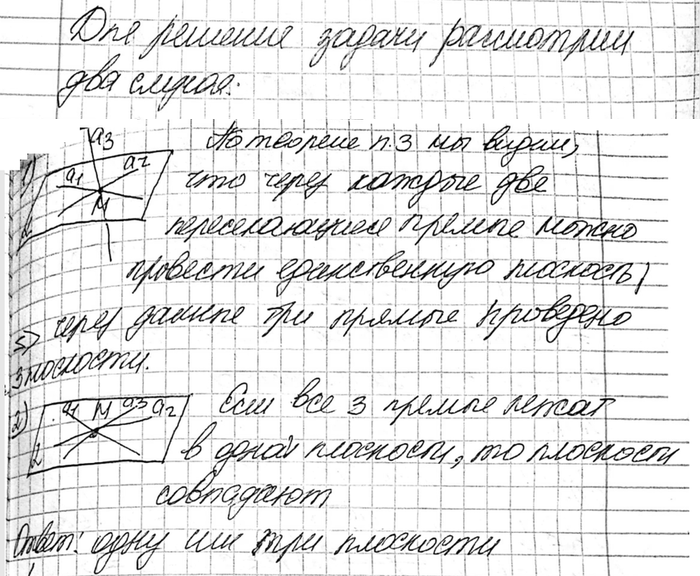 Для решение задачи рассмотрим
два случая:
1) a3 a1 a2 M α
По теореме п.3 мы видим,
что через каждые две
пересекающиеся прямые можно
провести единственную плоскость,
=> через данные три прямые проведено
3 плоскости.
2) a1 M a3 a2 α
Если все 3 прямые лежат
в одной плоскости, то плоскости
совпадают
Ответ: одну или три плоскости